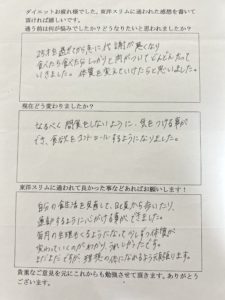 ダイエットお疲れ様でした。東洋スリムに通われた感想を書いて
頂ければ嬉しいです。
通う前は何が悩みでしたか？どうなりたいと思われましたか？
25才を過ぎてから急に代謝が悪くなり
食べたら食べた分しっかりと肉がついてどんどん太って
いきました。体質を変えていけたらと思いました。
現在どう変わりましたか？
なるべく間食をしないように、気をつける事が
でき、食欲をコントロールするようになりました。
東洋スリムに通われて良かった事などあればお願いします！
自分の食生活を見直して、日頃から歩いたり、
運動するように心がける事ができました。
毎月の生理もくるようになって少しずつ体質が
変わっていくのがわかり、うれしかったです。
まだまだですが、理想の体になれるよう頑張ります。
貴重なご意見を元にこれからも勉強させて頂きます。ありがとう
ございます。